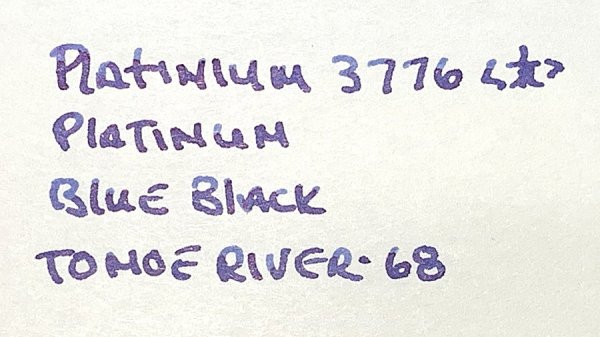 PLATINIUM 3776 <太>
PLATINUM
BLUE BLACK
TOMOE RIVER-68